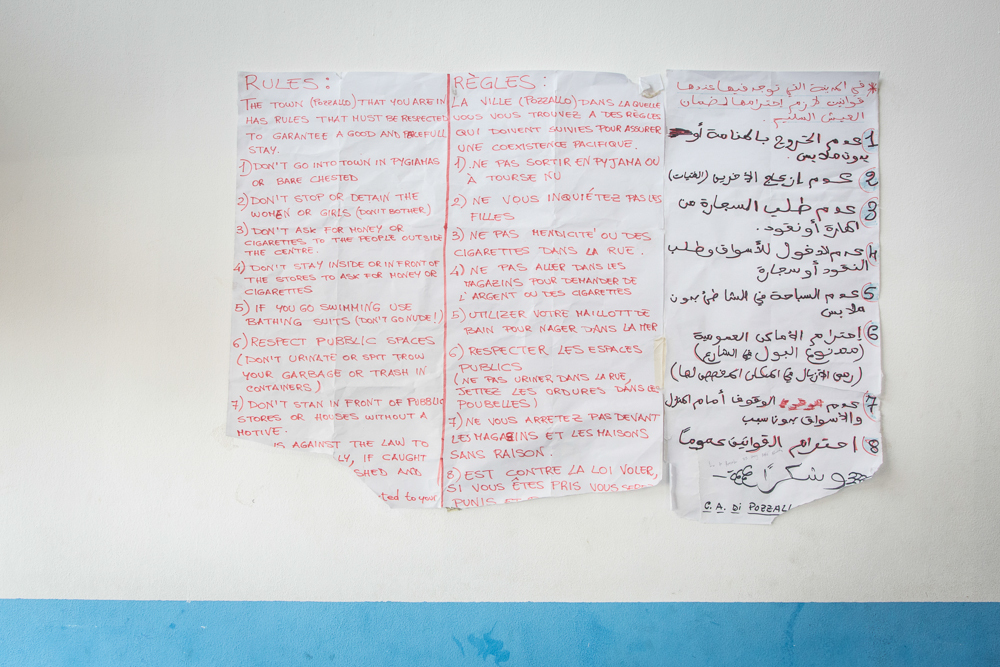 RULES:
THE TOWN (POZZALLO) THAT YOU ARE IN
HAS RULES THAT MUST BE RESPECTED
TO GARANTEE A GOOD AND PEACEFULL
STAY.
1) DON'T GO INTO TOWN IN PYGIAMAS
OR BARE CHESTED
2) DON'T STOP OR DETAIN THE
WOMEN OR GIRLS (DON'T BOTHER)
3) DON'T ASK FOR MONEY OR
CIGARETTES TO THE PEOPLE OUTSIDE
THE CENTRE.
4) DON'T STAY INSIDE OR IN FRONT OF
THE STORES TO ASK FOR MONEY OR
CIGARETTES
5) IF YOU GO SWIMMING USE
BATHING SUITS (DON'T GO NUDE!)
6) RESPECT PUBBLIC SPACES
(DON'T URINATE OR SPIT TROW
YOUR GARBAGE OR TRASH IN
CONTAINERS)
7) DON'T STAN IN FRONT OF PUBBLIC
STORES OR HOUSES WITHOUT A
MOTIVE.
IS AGAINST THE LAW TO
LY, IF CAUGHT
SHED AND
ted to your
RÈGLES:
LA VILLE (POZZALLO) DANS LA QUELLE
VOUS VOUS TROUVEZ A DES RÈGLES
QUI DOIVENT SUIVIES POUR ASSURER
UNE COEXISTENCE PACIFIQUE.
1). NE PAS SORTIR EN PYJAMA OU
À TOURSE NU
2) NE VOUS INQUIÉTEZ PAS LES
FILLES
3) NE PAS MENDICITÉ OU DES
CIGARETTES DANS LA RUE.
4) NE PAS ALLER DANS LES
MAGAZINS POUR DEMANDER DE
L'ARGENT OU DES CIGARETTES
5) UTILIZER VOTRE MAILLOTT DE
BAIN POUR NAGER DANS LA MER
6) RESPECTER LES ESPACES
PUBLICS
(NE PAS URINER DANS LA RUE,
JETTEZ LES ORDURES DANS LES
POUBELLES)
7) NE VOUS ARRETEZ PAS DEVANT
LES MAGASINS ET LES MAISONS
SANS RAISON.
8) EST CONTRE LA LOI VOLER,
SI VOUS ÊTES PRIS VOUS SEREZ
PUNIS
* في المدينة التي توجد فيها عندها
قوانين لازم إحترامها لضمان
العيش السليم
1 عدم الخروج بالمنامة أو
بدون ملابس
2 عدم ازعاج الآخرين (الفتيات)
3 عدم طلب السجارة من
المارة أو نقود.
4 عدم الدخول للأسواق وطلب
النقود أو سجارة
5 عدم السباحة في الشاطئ بدون
ملابس
6 إحترام الأماكن العمومية
(ممنوع البول في الشارع)
(رمي الأزبال في المكان المخصص لها)
7 عدم الوقوف أمام المنزل
والأسواق بدون سبب
8 احترام القوانين عموماً
وشكراً
C.A. Di POZZALL